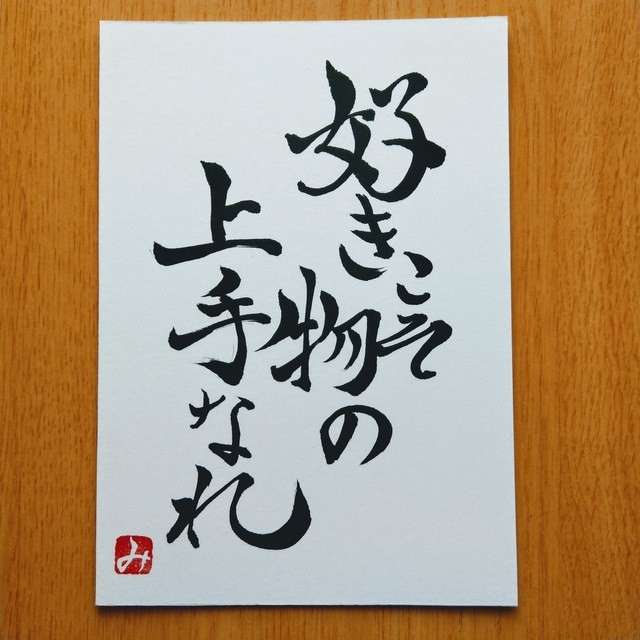 好きこそ
物の
上手なれ
み